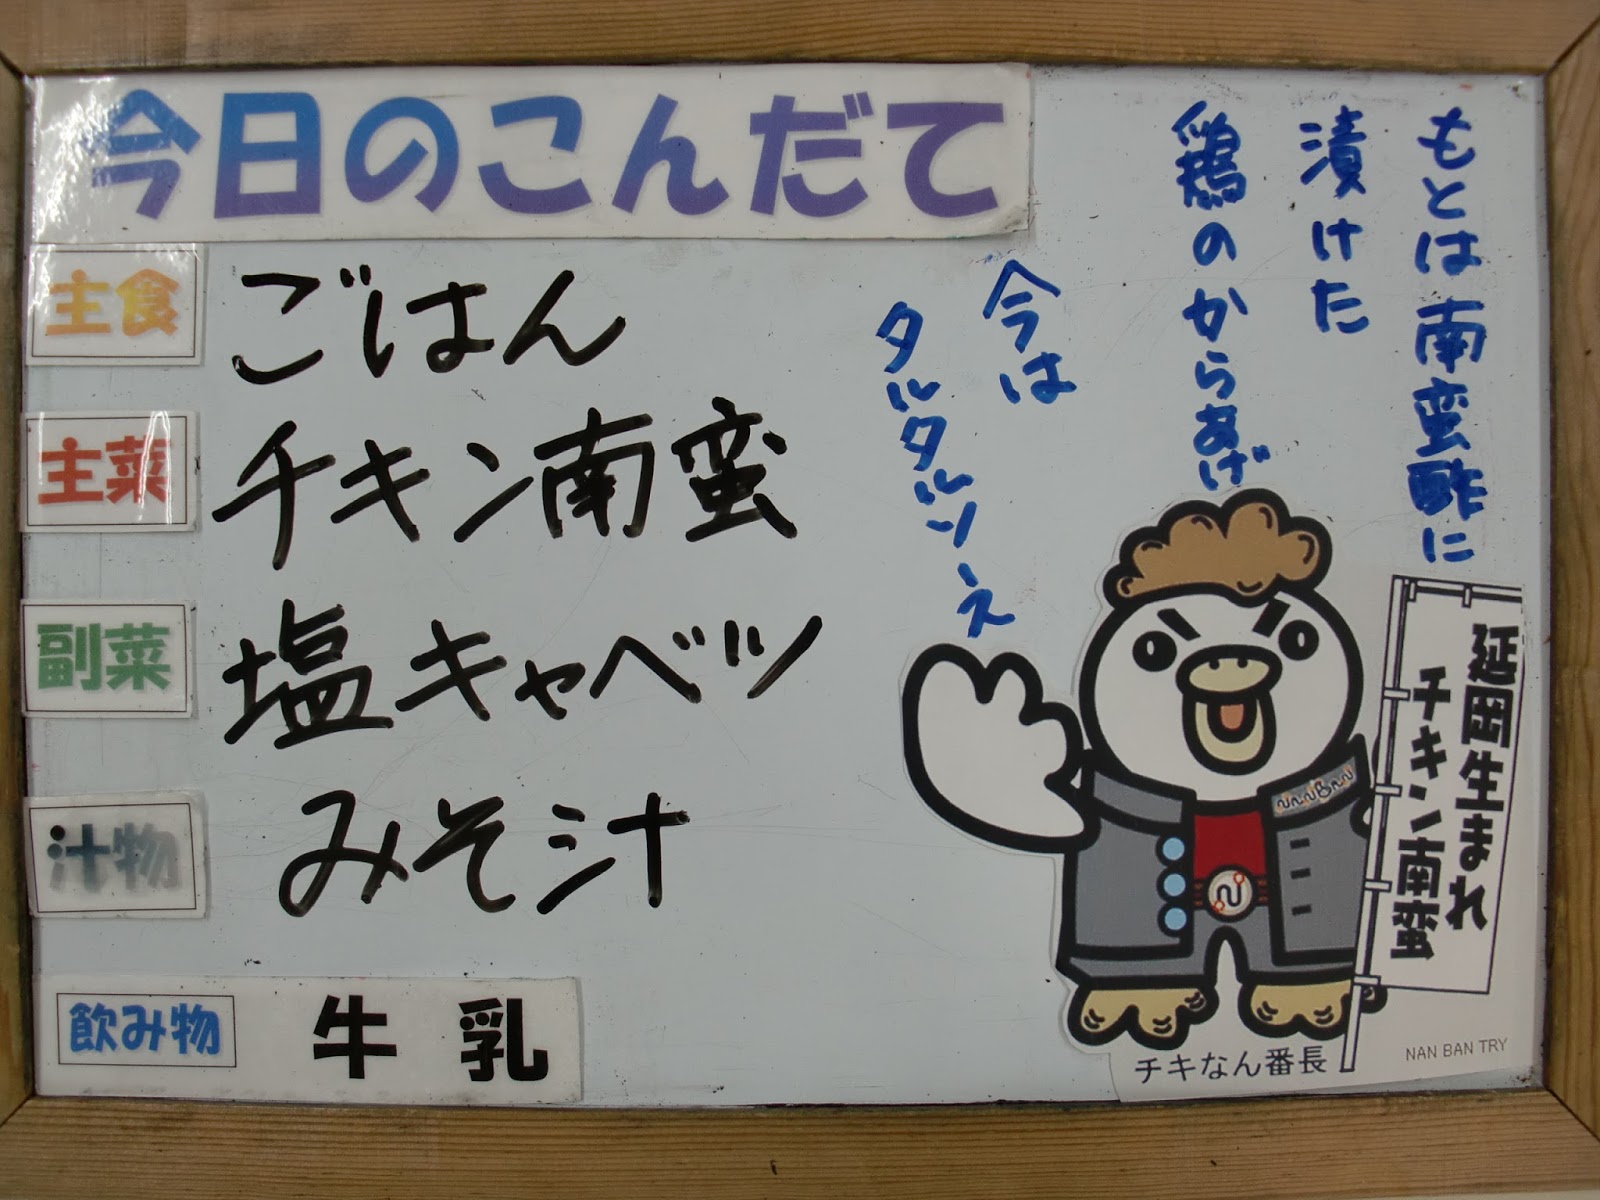 今日のこんだて
主食 ごはん
主菜 チキン南蛮
副菜 塩キャベツ
汁物 みそ汁
飲み物 牛乳
もとは南蛮酢に
漬けた
鶏のからあげ
今は
タルタルソース
延岡生まれ
チキン南蛮
チキなん番長
NAN BAN TRY